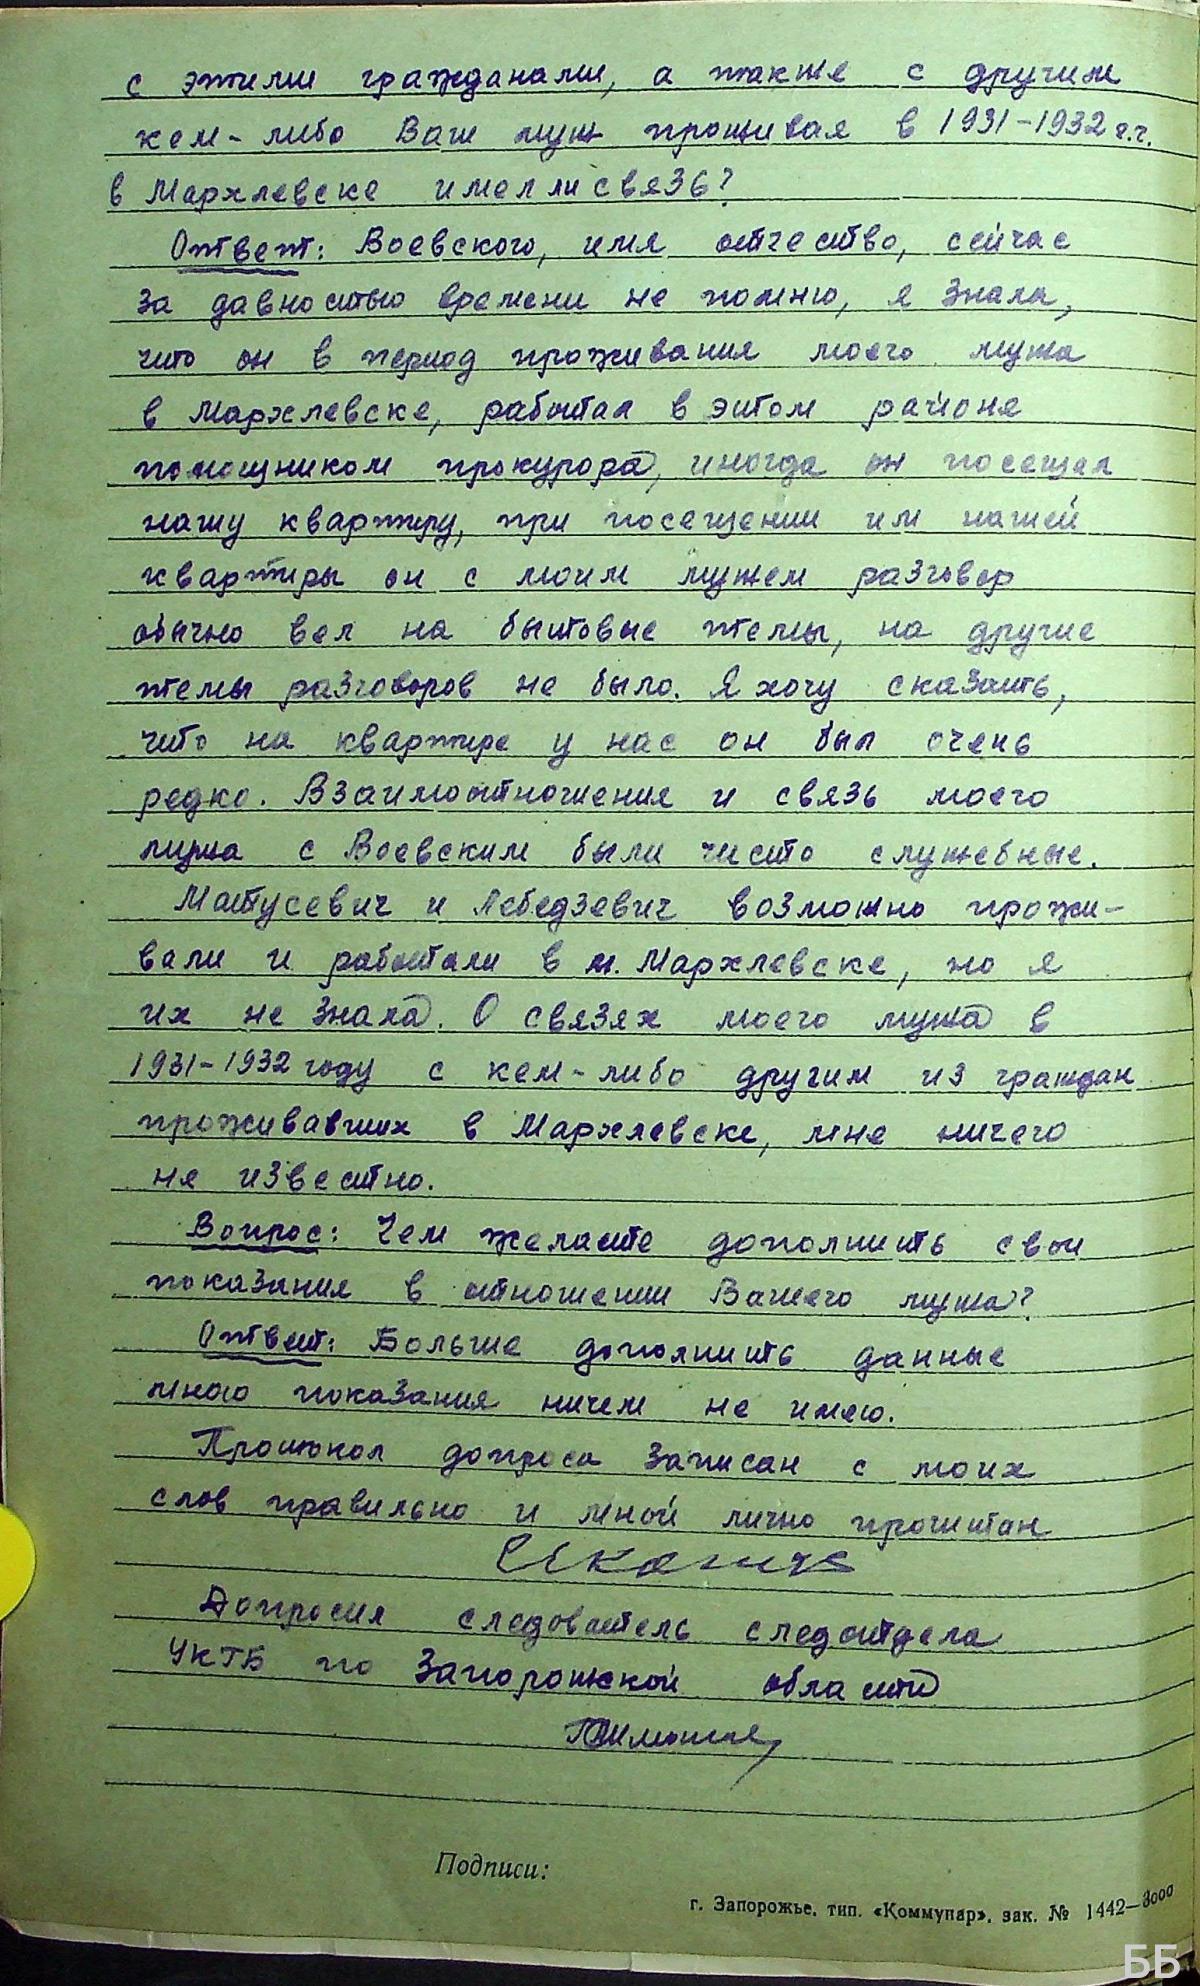 с этими гражданами, а также с другим
кем-либо Ваш муж проживая в 1931-1932 г.г.
в Мархлевске имел ли связь?
Ответ: Воевского, имя отчество, сейчас
за давностью времени не помню, я знала,
что он в период проживания моего мужа
в Мархлевске, работал в этом районе
помощником прокурора, иногда он посещал
нашу квартиру, при посещении им нашей
квартиры он с моим мужем разговор
обычно вел на бытовые темы, на другие
темы разговоров не было. Я хочу сказать,
что на квартире у нас он был очень
редко. Взаимоотношения и связь моего
мужа с Воевским были чисто служебные.
Матусевич и Лебедзевич возможно прожи-
вали и работали в м. Мархлевске, но я
их не знала. О связях моего мужа в
1931-1932 году с кем-либо другим из граждан
проживавших в Мархлевске, мне ничего
не известно.
Вопрос: Чем желаете дополнить свои
показания в отношении Вашего мужа?
Ответ: Больше дополнить данные
мною показания ничем не имею.
Протокол допроса записан с моих
слов правильно и мной лично прочитан
Допросил следователь следотдела
УКГБ по Запорожской области
Подписи:
г. Запорожье, тип. «Коммунар», зак. № 1442—3000
ББ